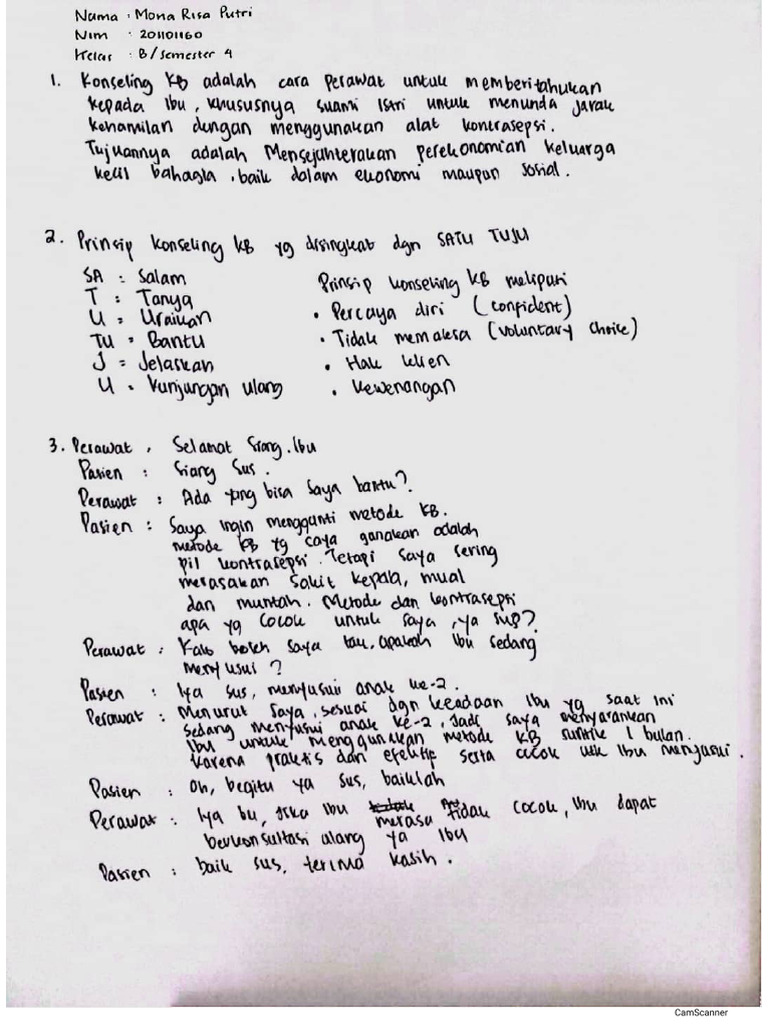 Nama : Mona Risa Putri
Nim : 201101160
Kelas : B/Semester 4
1. Konseling KB adalah cara perawat untuk memberitahukan
kepada Ibu, khususnya suami Istri untuk menunda jarak
kehamilan dengan menggunakan alat kontrasepsi.
Tujuannya adalah Mensejahterakan perekonomian keluarga
kecil bahagia, baik dalam ekonomi maupun sosial.
2. Prinsip konseling KB yg disingkat dgn SATU TUJU
SA : Salam
T : Tanya
U : Uraikan
TU : Bantu
J : Jelaskan
U : Kunjungan ulang
Prinsip konseling KB meliputi
• Percaya diri (confident)
• Tidak memaksa (voluntary choice)
• Hak klien
• Kewenangan
3. Perawat , Selamat Siang. Ibu
Pasien : Siang Sus.
Perawat : Ada yang bisa saya bantu?
Pasien : Saya ingin mengganti metode KB.
metode KB yg saya gunakan adalah
pil kontrasepsi. Tetapi saya sering
merasakan sakit kepala, mual
dan muntah. Metode dan kontrasepsi
apa yg cocok untuk saya, ya sus?
Perawat : Kalo boleh saya tau, apakah Ibu sedang
menyusui ?
Pasien : Iya sus, menyusui anak ke-2.
Perawat : Menurut saya, sesuai dgn keadaan Ibu yg saat ini
sedang menyusui anak ke-2, Jadi saya menyarankan
Ibu untuk menggunakan metode KB suntik 1 bulan.
karena praktis dan efektif serta cocok utk Ibu menyusui.
Pasien : Oh, begitu ya sus, baiklah
Perawat : Iya bu, Jika Ibu merasa tidak cocok, Ibu dapat
berkonsultasi ulang ya Ibu
Pasien : baik sus, terima kasih.
CamScanner